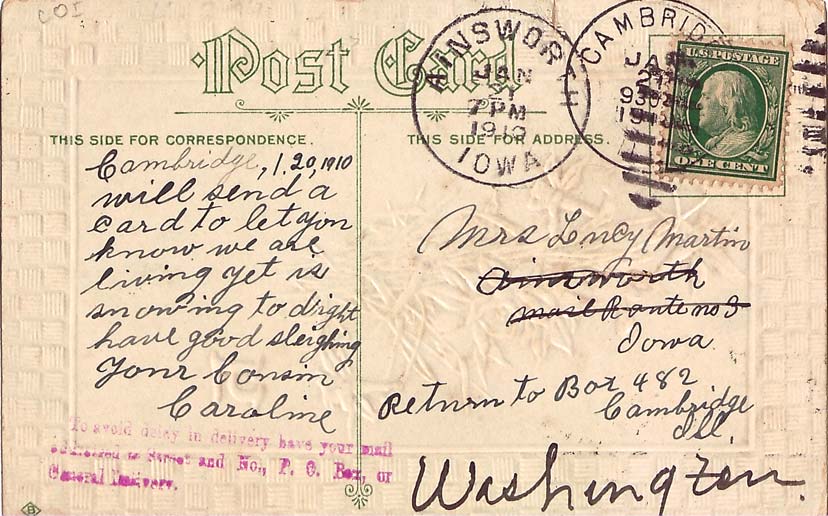 COI
Post Card
THIS SIDE FOR CORRESPONDENCE.
THIS SIDE FOR ADDRESS.
AINSWORTH
JAN
21
7 PM
1910
IOWA
CAMBRIDG
JAN
21
930
19
U.S. POSTAGE
ONE CENT
Cambridge, 1.20,1910
will send a
card to let you
know we are
living yet is
snowing to d'ight
have good sleighing
Your Cousin
Caroline
Mrs Lucy Martin
Ainsworth
Mail Route no 3
Iowa
Return to Box 482
Cambridge
Ill.
Washington.
To avoid delay in delivery have your mail
addressed to Street and No., P. O. Box, or
General Delivery.